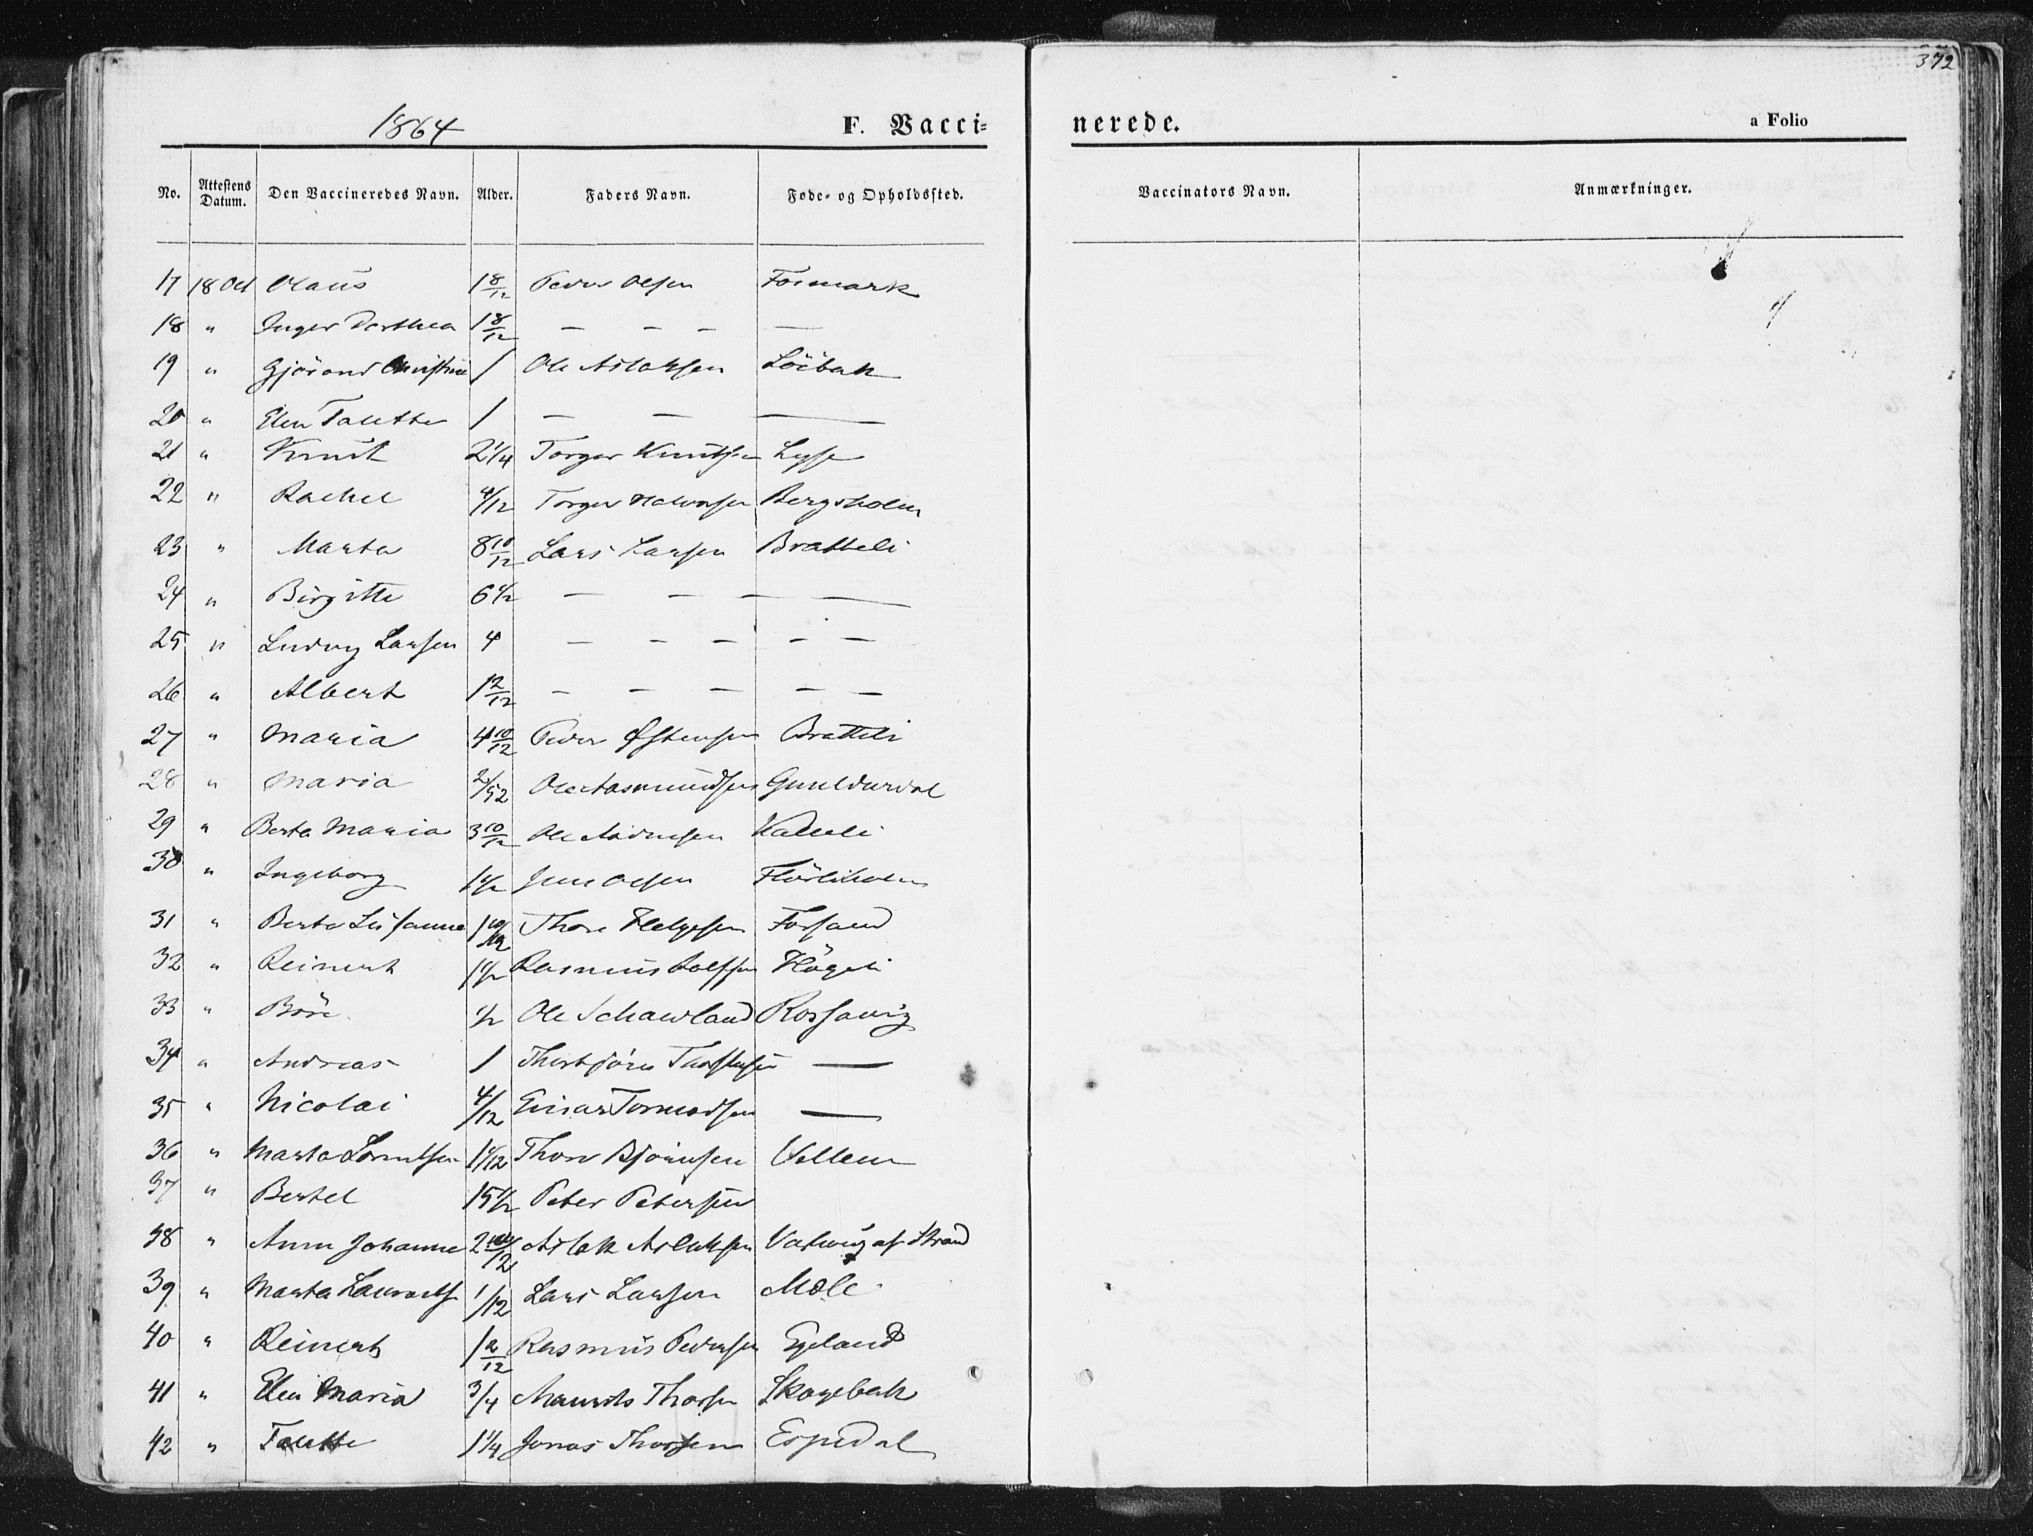 372
1864 F. Vacci=
nerede. a Folio
No. Attestens Datum. Den Vaccineredes Navn. Alder. Faders Navn. Føde- og Opholdssted. Vaccinators Navn. Anmærkninger.
17 18 Oct Olaus 1 8/12 Peder Olsen Fosmark
18 " Inger Dorthea 1 8/12 — — — —
19 " Gjörond Christine 1 Ole Aslaksen Löibak
20 " Elen Talette 1 — — —
21 " Knut 2 1/4 Torger Knutsen Lyse
22 " Rachel 4/12 Torger Halvorsen Bergsholm
23 " Marta 8 10/12 Lars Larsen Bratteli
24 " Birgitte 6 1/2 — — — —
25 " Ludvig Larsen 4 — — — — —
26 " Albert 1 2/12 — — — — —
27 " Maria 4 10/12 Peder Østensen Bratteli
28 " Maria 2/52 Ole Aasmundsen
29 " Berta Maria 3 10/12 Ole
30 " Ingeborg 1 1/2 Olsen Flörliholm
31 " Berta Susanne 1 10/12 Thore Helgesen Forsand
32 " Reinert 1 1/2 Rasmus Högeli
33 " Böre 1/2 Ole Schawland Rossavig
34 " Andreas 1 Thorbjörn Thorstensen —
35 " Nicolai 4/12 Einar Tormodsen —
36 " Marta 1 1/12 Thore Bjömsen
37 " Bertel 15 1/2 Peter Petersen
38 " Anne Johanne 2 /12 Aslak Aslaksen af Strand
39 " Marta 1/12 Lars Larsen Mæle
40 " Reinert 1 2/12 Rasmus Pedersen Egeland
41 " Elen Maria 3/4 Maurits Thorsen Skogebak
42 " Talette 1 1/4 Jonas Thorsen Espedal